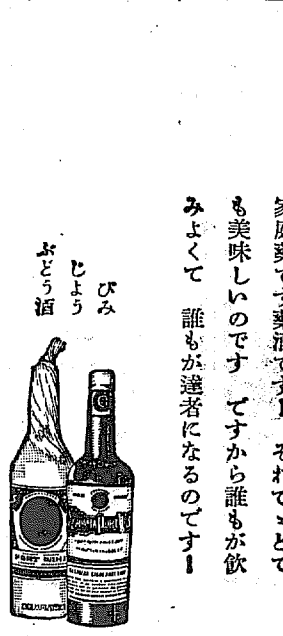 家庭薬です薬酒です! それでゝとて
も美味しいのです ですから誰もが飲
みよくて 誰もが達者になるのです!
びみ
じよう
ぶどう酒
PORT